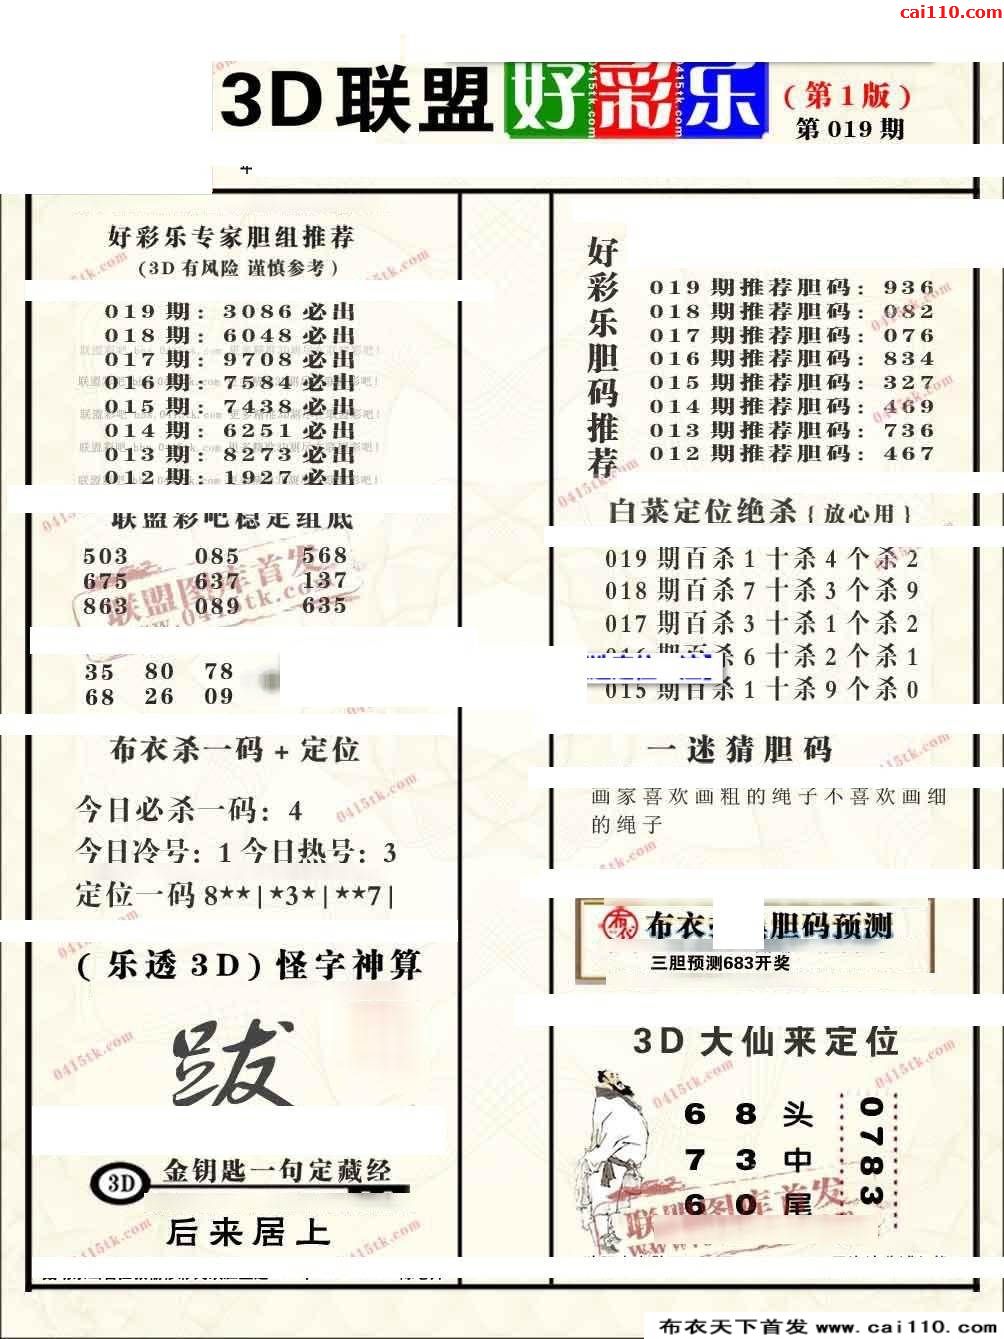 cai110.com
3D联盟 好彩乐
(第1版)
第019期
年
好彩乐专家胆组推荐
(3D有风险 谨慎参考)
019期: 3086必出
018期: 6048必出
017期: 9708必出
016期: 7584必出
015期: 7438必出
014期: 6251必出
013期: 8273必出
012期: 1927必出
联盟彩吧稳定组底
503 085 568
675 637 137
863 089 635
35 80 78
68 26 09
布衣杀一码+定位
今日必杀一码: 4
今日冷号: 1 今日热号: 3
定位一码 8**|*3*|**7|
(乐透3D)怪字神算
跋
3D 金钥匙一句定藏经
后来居上
好彩乐胆码推荐
019期推荐胆码: 936
018期推荐胆码: 082
017期推荐胆码: 076
016期推荐胆码: 834
015期推荐胆码: 327
014期推荐胆码: 469
013期推荐胆码: 736
012期推荐胆码: 467
白菜定位绝杀{放心用}
019期百杀1十杀4个杀2
018期百杀7十杀3个杀9
017期百杀3十杀1个杀2
016期百杀6十杀2个杀1
015期百杀1十杀9个杀0
一迷猜胆码
画家喜欢画粗的绳子不喜欢画细
的绳子
布衣 胆码预测
三胆预测683开奖
3D大仙来定位
6 8 头
7 3 中
6 0 尾
0783
联盟图库首发
www.0415tk.com
0415tk.com
布衣天下首发 www.cai110.com